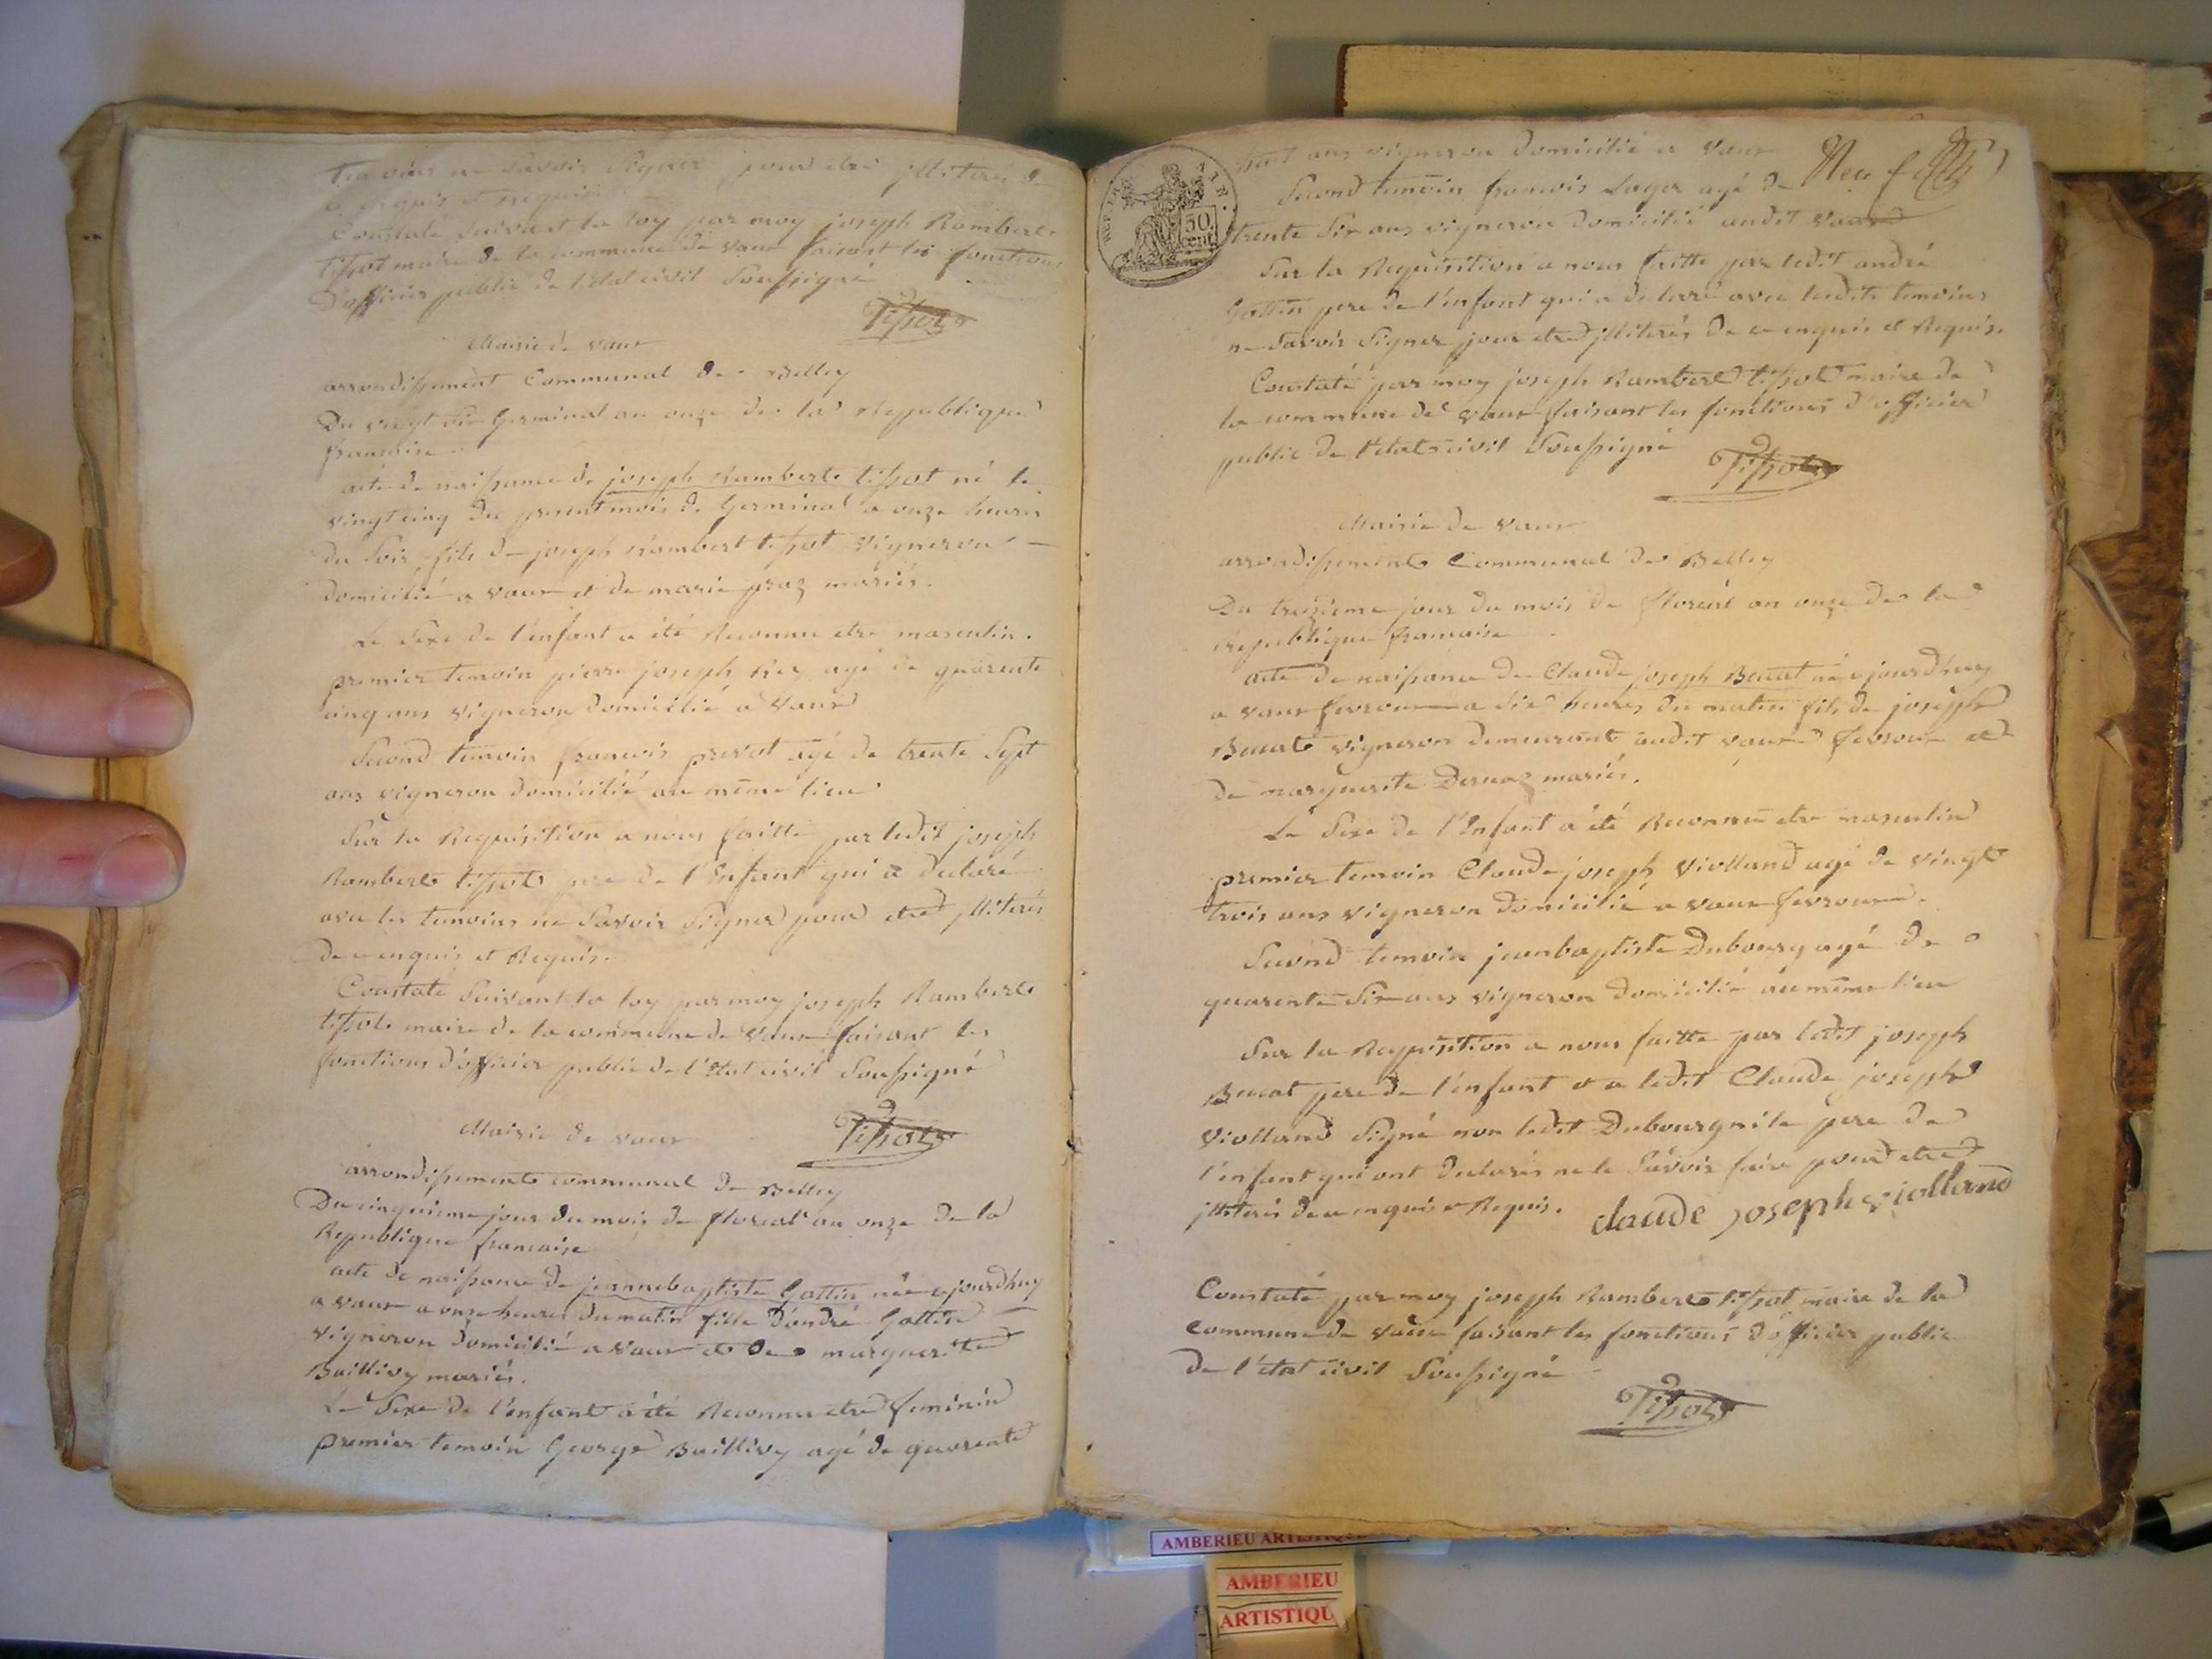 temoins ne Savoir Signer pour etre illiterés de
ce enquis et requis
Constaté Suivant la loy par moy joseph Rambert
tissot maire de la commune de vaux faisant les fonctions
d'officier public de l'état civil Soussigné
Tissot
Mairie de vaux
arrondissement Communal de Belley
Du vingt six Germinal an onze de la Republique
francaise
acte de naissance de joseph Rambert tissot né le
vingt cinq du present mois de Germinal a onze heures
du Soir, fils de joseph Rambert tissot vigneron
domicilié a vaux et de marie praz mariés.
Le Sexe de l'enfant a été Reconnu etre masculin.
premier temoin pierre joseph Rey agé de quarente
cinq ans vigneron domicilié a vaux
Second temoin francois prevot agé de trente Sept
ans vigneron domicilié au même lieu
Sur la Requisition a nous faitte par ledit joseph
Rambert tissot pere de l'Enfant qui a declaré
avec les temoins ne Savoir Signer pour etre illiterés
de ce enquis et Requis.
Constaté Suivant la loy par moy joseph Rambert
tissot maire de la commune de vaux faisant les
fonctions d'officier public de l'état civil Soussigné
Tissot
Mairie de vaux
arrondissement communal de Belley
Du cinquieme jour du mois de floreal an onze de la
Republique francaise
acte de naissance de jeannebaptiste Gottin née ajourdhuy
a vaux a onze heures du matin fille d'andré Gottin
vigneron domicilié a vaux et de marguerite
Baillivy mariés.
Le Sexe de l'enfant a été Reconnu etre feminin
premier temoin George Baillivy agé de quarente
REP. FRA
TIN.
50
cent.
huit ans vigneron domicilié a vaux
Neuf
Second temoin francois Loger agé de
trente Six ans vigneron domicilié audit vaux
Sur la Requisition a nous faitte par ledit andré
Gottin pere de l'enfant qui a declaré avec lesdits temoins
ne Savoir Signer pour etre illiterés de ce enquis et Requis.
Constaté par moy joseph Rambert tissot maire de
la commune de vaux faisant les fonctions d'officier
public de l'état civil Soussigné
Tissot
Mairie de vaux
arrondissement Communal de Belley
Du treizieme jour du mois de floreal an onze de la
Republique francaise
acte de naissance de Claude joseph Bucat né ajourdhuy
a vaux fevroux a dix heures du matin fils de joseph
Bucat vigneron demeurant audit vaux fevroux et
de marguerite Dervaz mariés.
Le Sexe de l'Enfant a été Reconnu etre masculin
premier temoin Claude joseph Violland agé de vingt
trois ans vigneron domicilié a vaux fevroux.
Second temoin jeanbaptiste Dubourg agé de
quarente Six ans vigneron domicilié au même lieu
Sur la Requisition a nous faitte par ledit joseph
Bucat pere de l'enfant et a ledit Claude joseph
Violland Signé non ledit Dubourg ni le pere de
l'enfant qui ont declarés ne le Savoir faire pour etre
illiterés de ce enquis et Requis.
claude joseph violland
Constaté par moy joseph Rambert tissot maire de la
commune de vaux faisant les fonctions d'officier public
de l'état civil Soussigné
Tissot
AMBERIEU ARTISTIQUE
AMBERIEU
ARTISTIQU